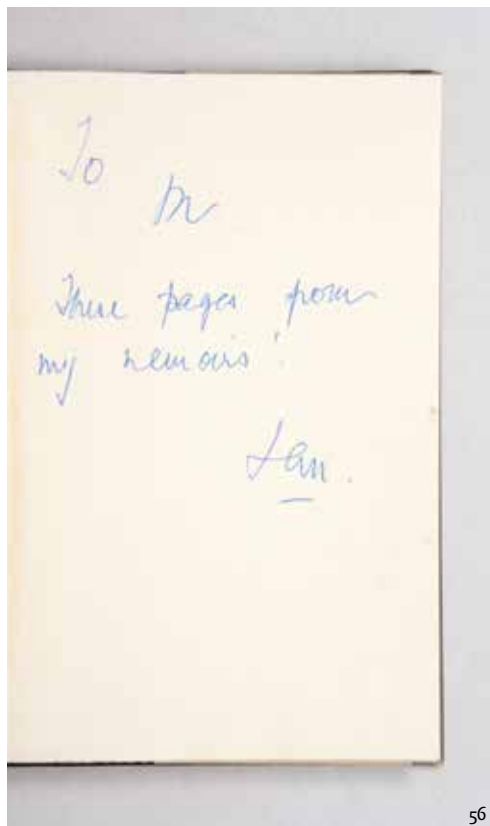 To
M
These pages from
my memoirs!
Ian.
56